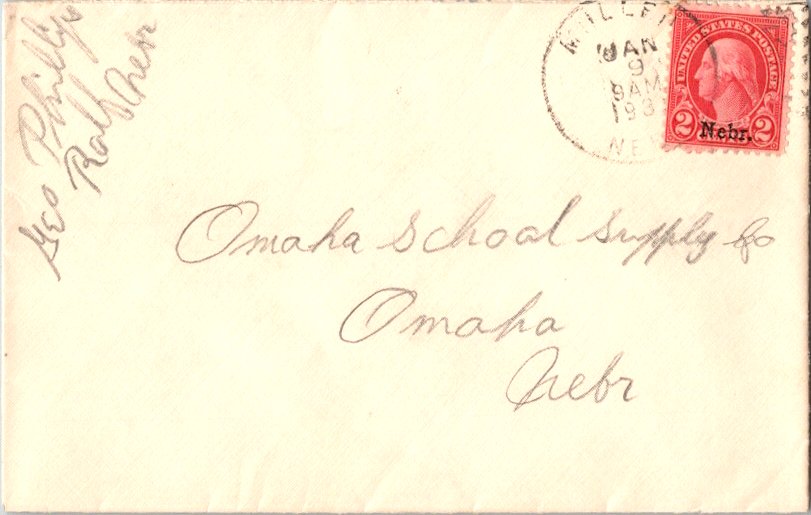 Geo Phillips
Ralf Nebr
JAN
9
9AM
193
NE
UNITED STATES POSTAGE
2 Nebr. 2
Omaha School Supply Co
Omaha
Nebr